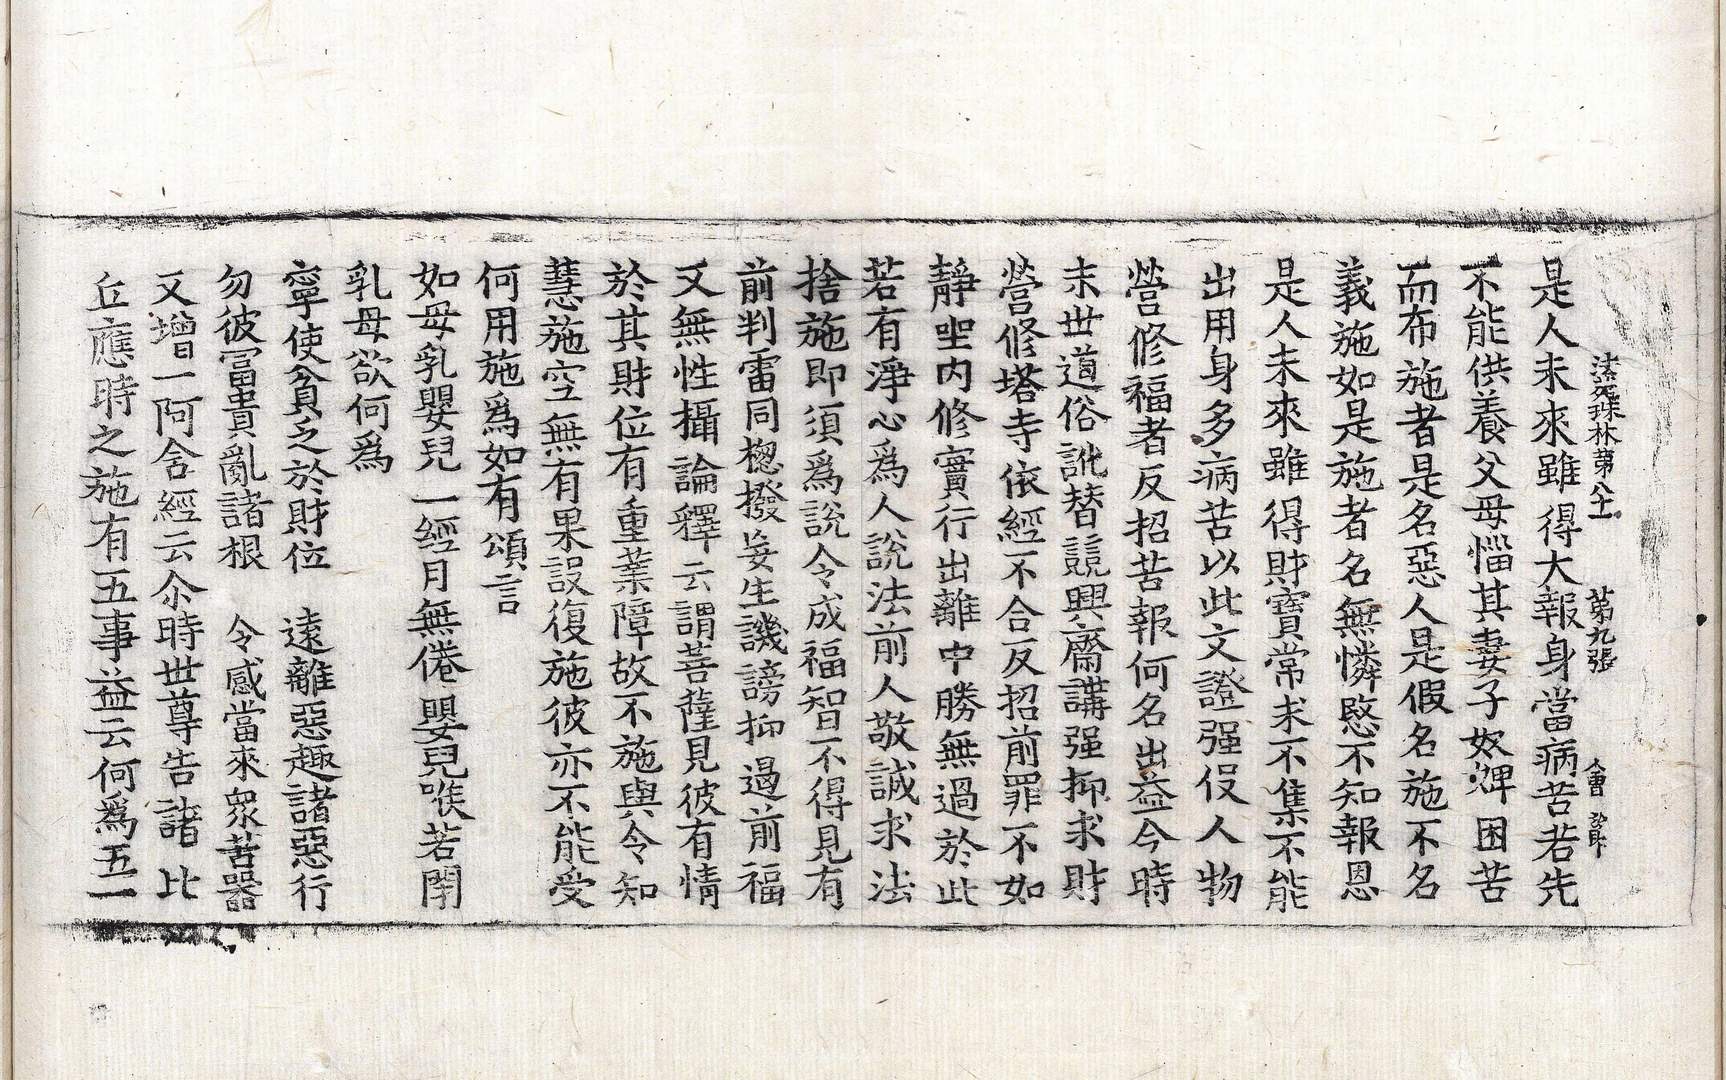 法苑珠林第八十一 第九張 會
是人未來雖得大報身當病苦若先
不能供養父母惱其妻子奴婢困苦
而布施者是名惡人是假名施不名
義施如是施者名無憐愍不知報恩
是人未來雖得財寶常求不集不能
出用身多病苦以此文證强役人物
營修福者反招苦報何名出益今時
末世道俗訛替競興齋講强抑求財
營修塔寺依經不合反招前罪不如
靜坐內修實行出離中勝無過於此
若有淨心爲人說法前人敬誠求法
捨施即須爲說令成福智不得見有
前判雷同揔撥妄生譏謗抑遏前福
又無性攝論釋云謂菩薩見彼有情
於其財位有重業障故不施與令知
慧施空無有果設復施彼亦不能受
何用施爲如有頌言
如母乳嬰兒一經月無倦嬰兒喉若閉
乳母欲何爲
寧使貧乏於財位 遠離惡趣諸惡行
勿彼冨貴亂諸根 令感當來衆苦器
又增一阿含經云尒時世尊告諸比
丘應時之施有五事益云何爲五一